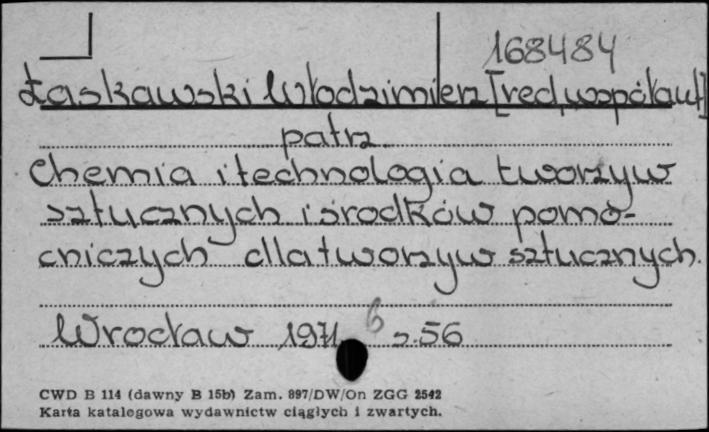 168484
Łaskawski Włodzimierz [red., współaut]
patrz
Chemia i technologia tworzyw
sztucznych i środków pomo-
cniczych dla tworzyw sztucznych.
Wrocław 1971 6 s. 56
CWD B 114 (dawny B 15b) Zam. 897/DW/On ZGG 2542
Karta katalogowa wydawnictw ciągłych i zwartych.